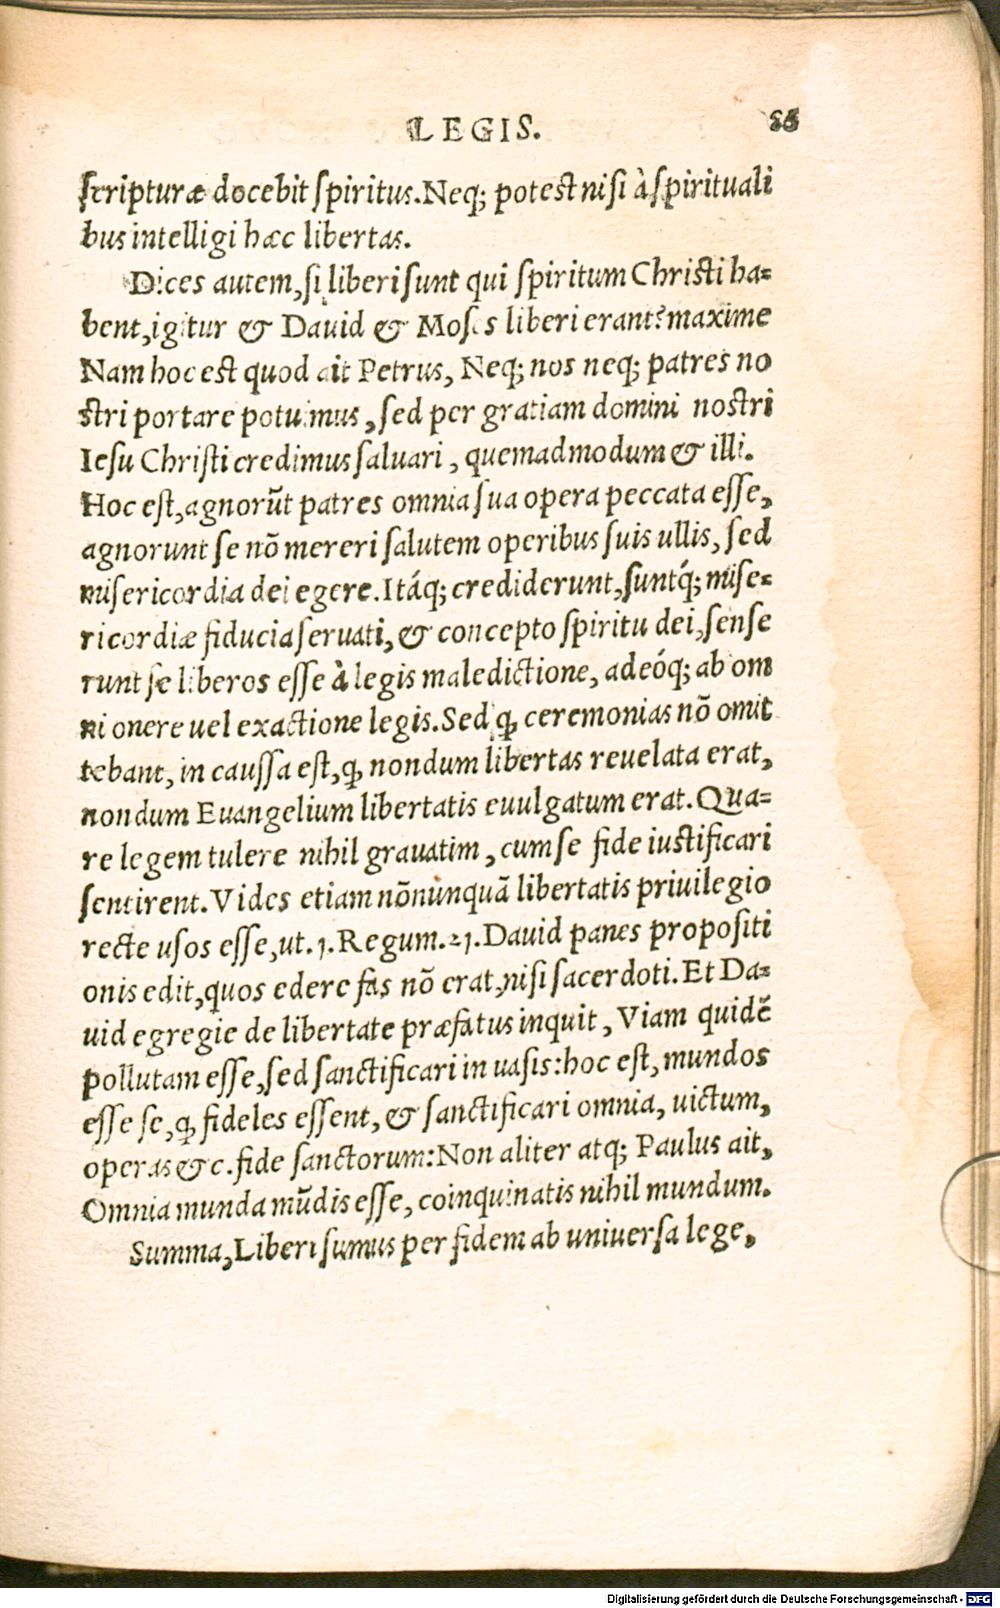 LEGIS. 86
scripturæ docebit spiritus. Neq; potest nisi à spirituali
bus intelligi hæc libertas.
Dices autem, si liberi sunt qui spiritum Christi ha=
bent, igitur & David & Moses liberi erant? maxime
Nam hoc est quod ait Petrus, Neq; nos neq; patres no
stri portare potuimus, sed per gratiam domini nostri
Iesu Christi credimus saluari, quemadmodum & illi.
Hoc est, agnorũt patres omnia sua opera peccata esse,
agnorunt se nõ mereri salutem operibus suis ullis, sed
misericordia dei egere. Itáq; crediderunt, suntq́; mise=
ricordiæ fiducia seruati, & concepto spiritu dei, sense
runt se liberos esse à legis maledictione, adeóq; ab om
ni onere uel exactione legis. Sed ꝙ ceremonias nõ omit
tebant, in caussa est, ꝙ nondum libertas reuelata erat,
nondum Euangelium libertatis euulgatum erat. Qua=
re legem tulere nihil grauatim, cum se fide iustificari
sentirent. Vides etiam nõnunquã libertatis priuilegio
recte usos esse, ut. 1. Regum. 21. Dauid panes propositi
onis edit, quos edere fas nõ erat, nisi sacerdoti. Et Da=
uid egregie de libertate præfatus inquit, Viam quidẽ
pollutam esse, sed sanctificari in uasis: hoc est, mundos
esse se, ꝙ fideles essent, & sanctificari omnia, uictum,
operas & c. fide sanctorum: Non aliter atq; Paulus ait,
Omnia munda mũdis esse, coinquinatis nihil mundum.
Summa, Liberi sumus per fidem ab uniuersa lege,
Digitalisierung gefördert durch die Deutsche Forschungsgemeinschaft - DFG